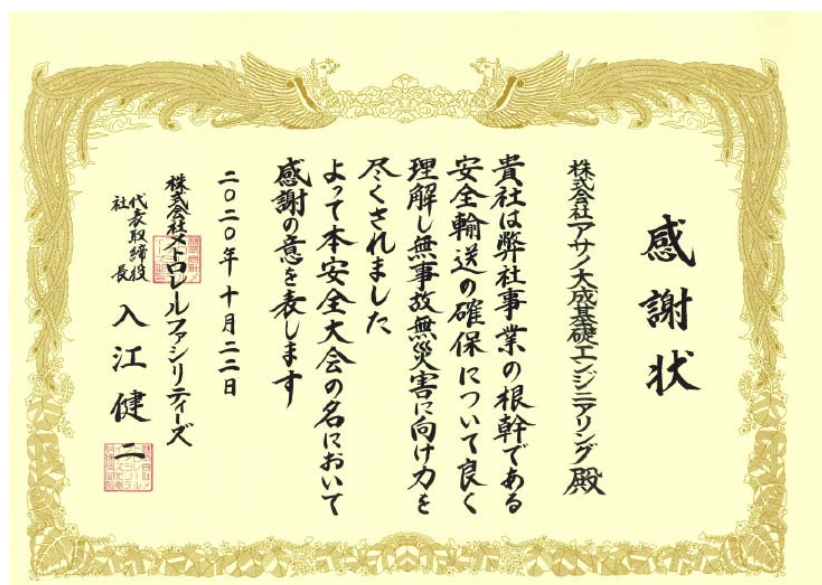 感謝状
株式会社アサノ大成基礎エンジニアリング殿
貴社は弊社事業の根幹である
安全輸送の確保について良く
理解し無事故無災害に向け力を
尽くされました
よって本安全大会の名において
感謝の意を表します
二〇二〇年十月二二日
株式会社メトロレールファシリティーズ
代表取締役
社長
入江健二